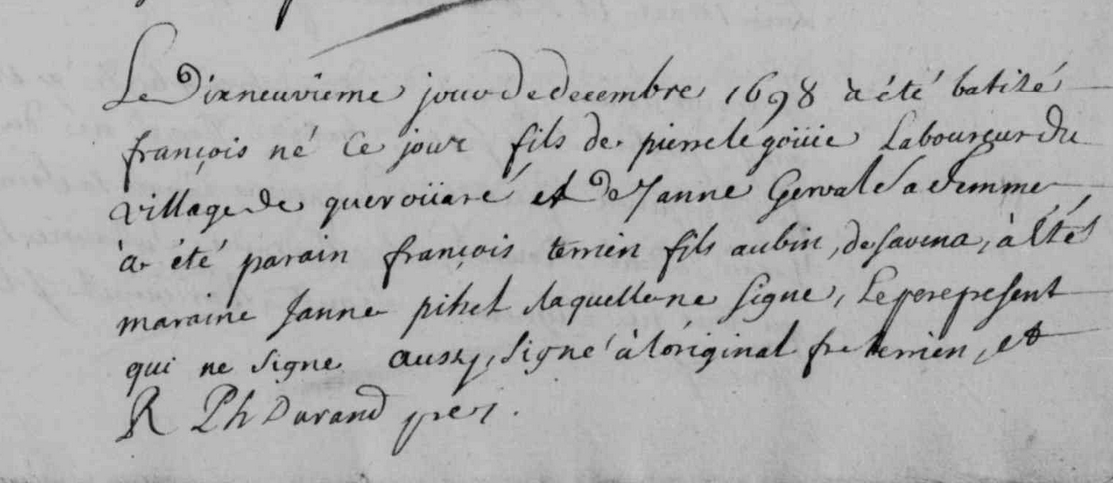 Le Dixneuvieme jour de decembre 1698 à été batizé
françois né ce jour fils de pierre le goüic Laboureur du
village de queroüaré et de Janne Gerval sa femme
à été parain françois terrien fils aubin, de savina, à été
maraine Janne pihel laquelle ne signe, Le pere present
qui ne signe aussy, signé à l'original fr terrien, et
R Ph Durand